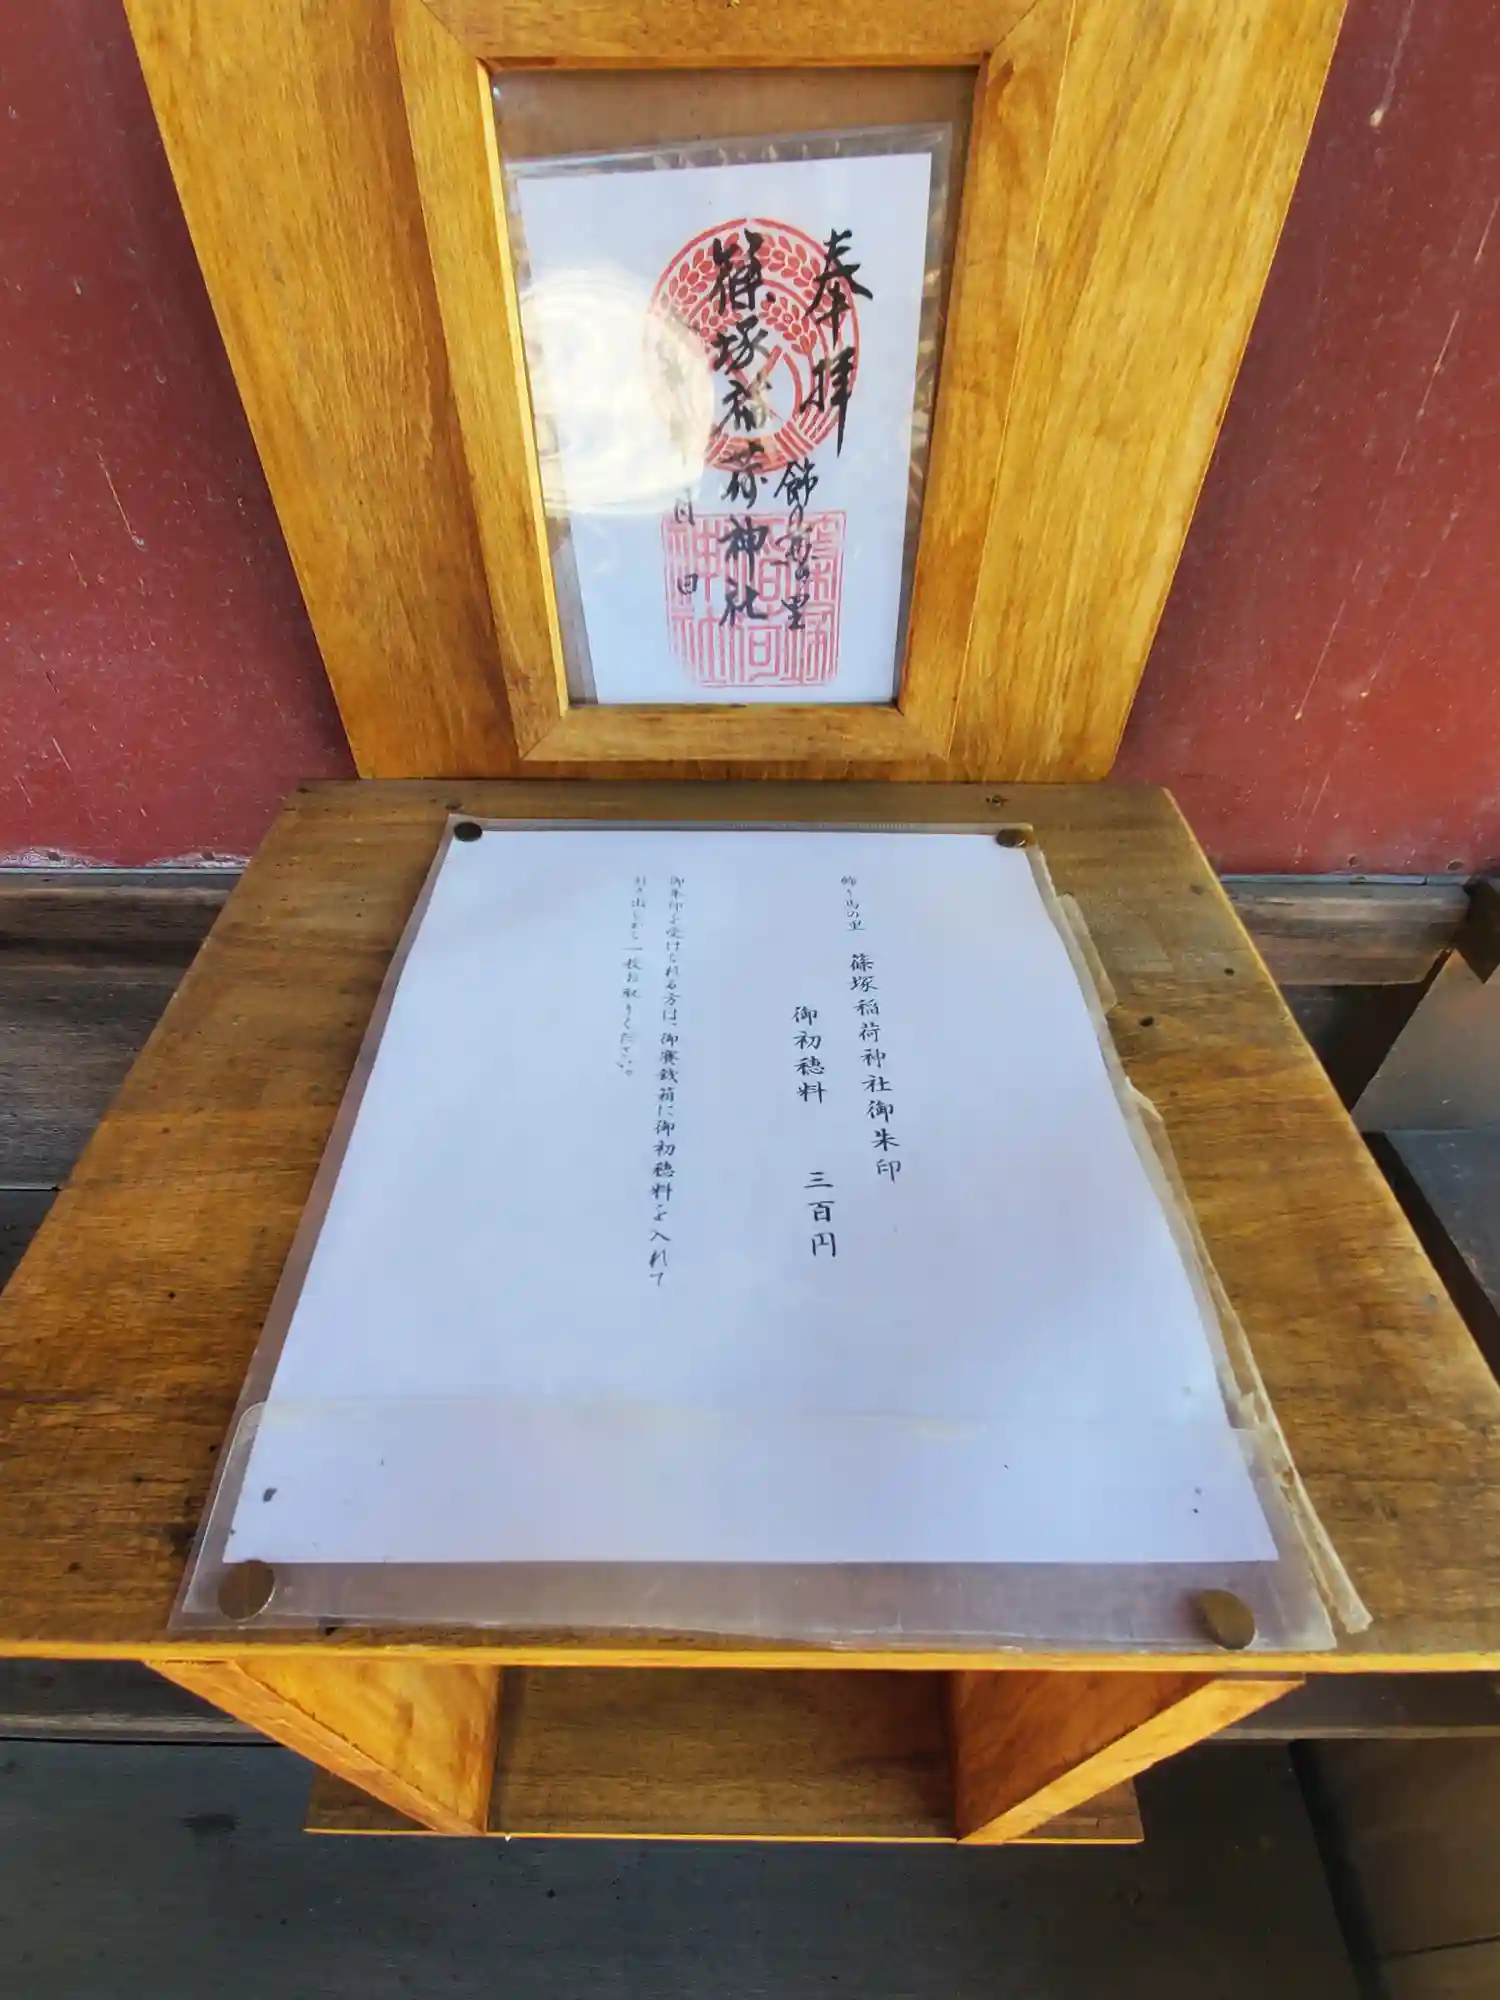 奉拝
飾り馬の里
篠塚稲荷神社
年 月 日
篠塚
稲荷
神社
飾り馬の里 篠塚稲荷神社御朱印
御初穂料 三百円
御朱印を受けられる方は、御賽銭箱に御初穂料を入れて
引き出しから一枚お取りください。